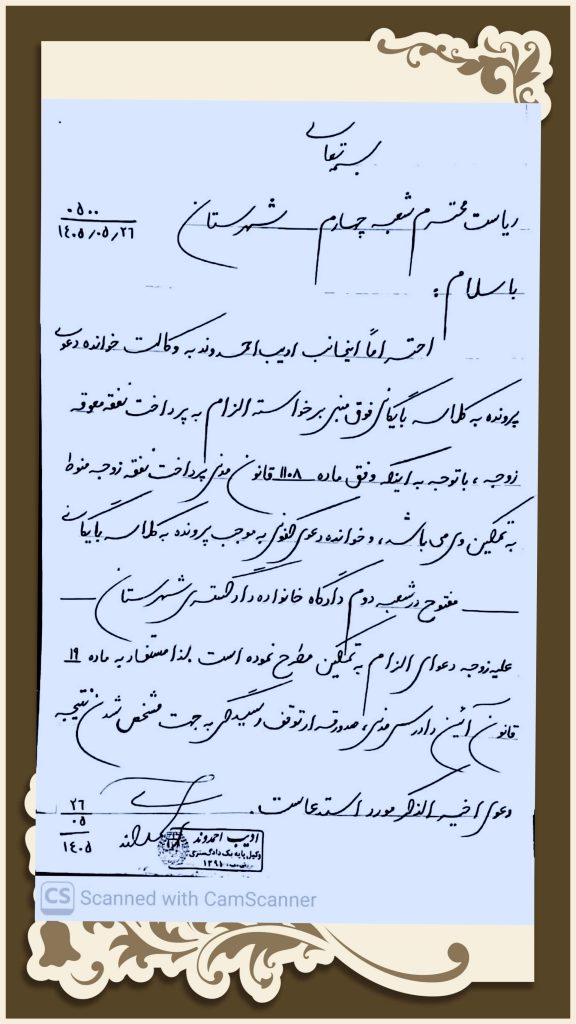 بسمه تعالی
ریاست محترم شعبه چهارم شهرستان
۰۵۰۰
۱۴۰۵/۰۵/۲۶
با سلام:
احتراماً اینجانب ادیب احمدوند به وکالت خوانده دعوی
پرونده به کلاسه بایگانی فوق مبنی بر خواسته الزام به پرداخت نفقه معوقه
زوجه، با توجه به اینکه وفق ماده ۱۱۰۸ قانون مدنی پرداخت نفقه زوجه منوط
به تمکین وی می باشد، و خوانده دعوی کنونی به موجب پرونده به کلاسه بایگانی
مفتوح در شعبه دوم دادگاه خانواده دادگستری شهرستان
علیه زوجه دعوای الزام به تمکین مطرح نموده است لذا مستفاد به ماده ۱۹
قانون آئین دادرسی مدنی، صدور قرار توقف رسیدگی به جهت مشخص شدن نتیجه
دعوی اخیرالذکر مورد استدعاست.
۲۶
۰۵
۱۴۰۵
ادیب احمدوند
وکیل پایه یک دادگستری
CS Scanned with CamScanner